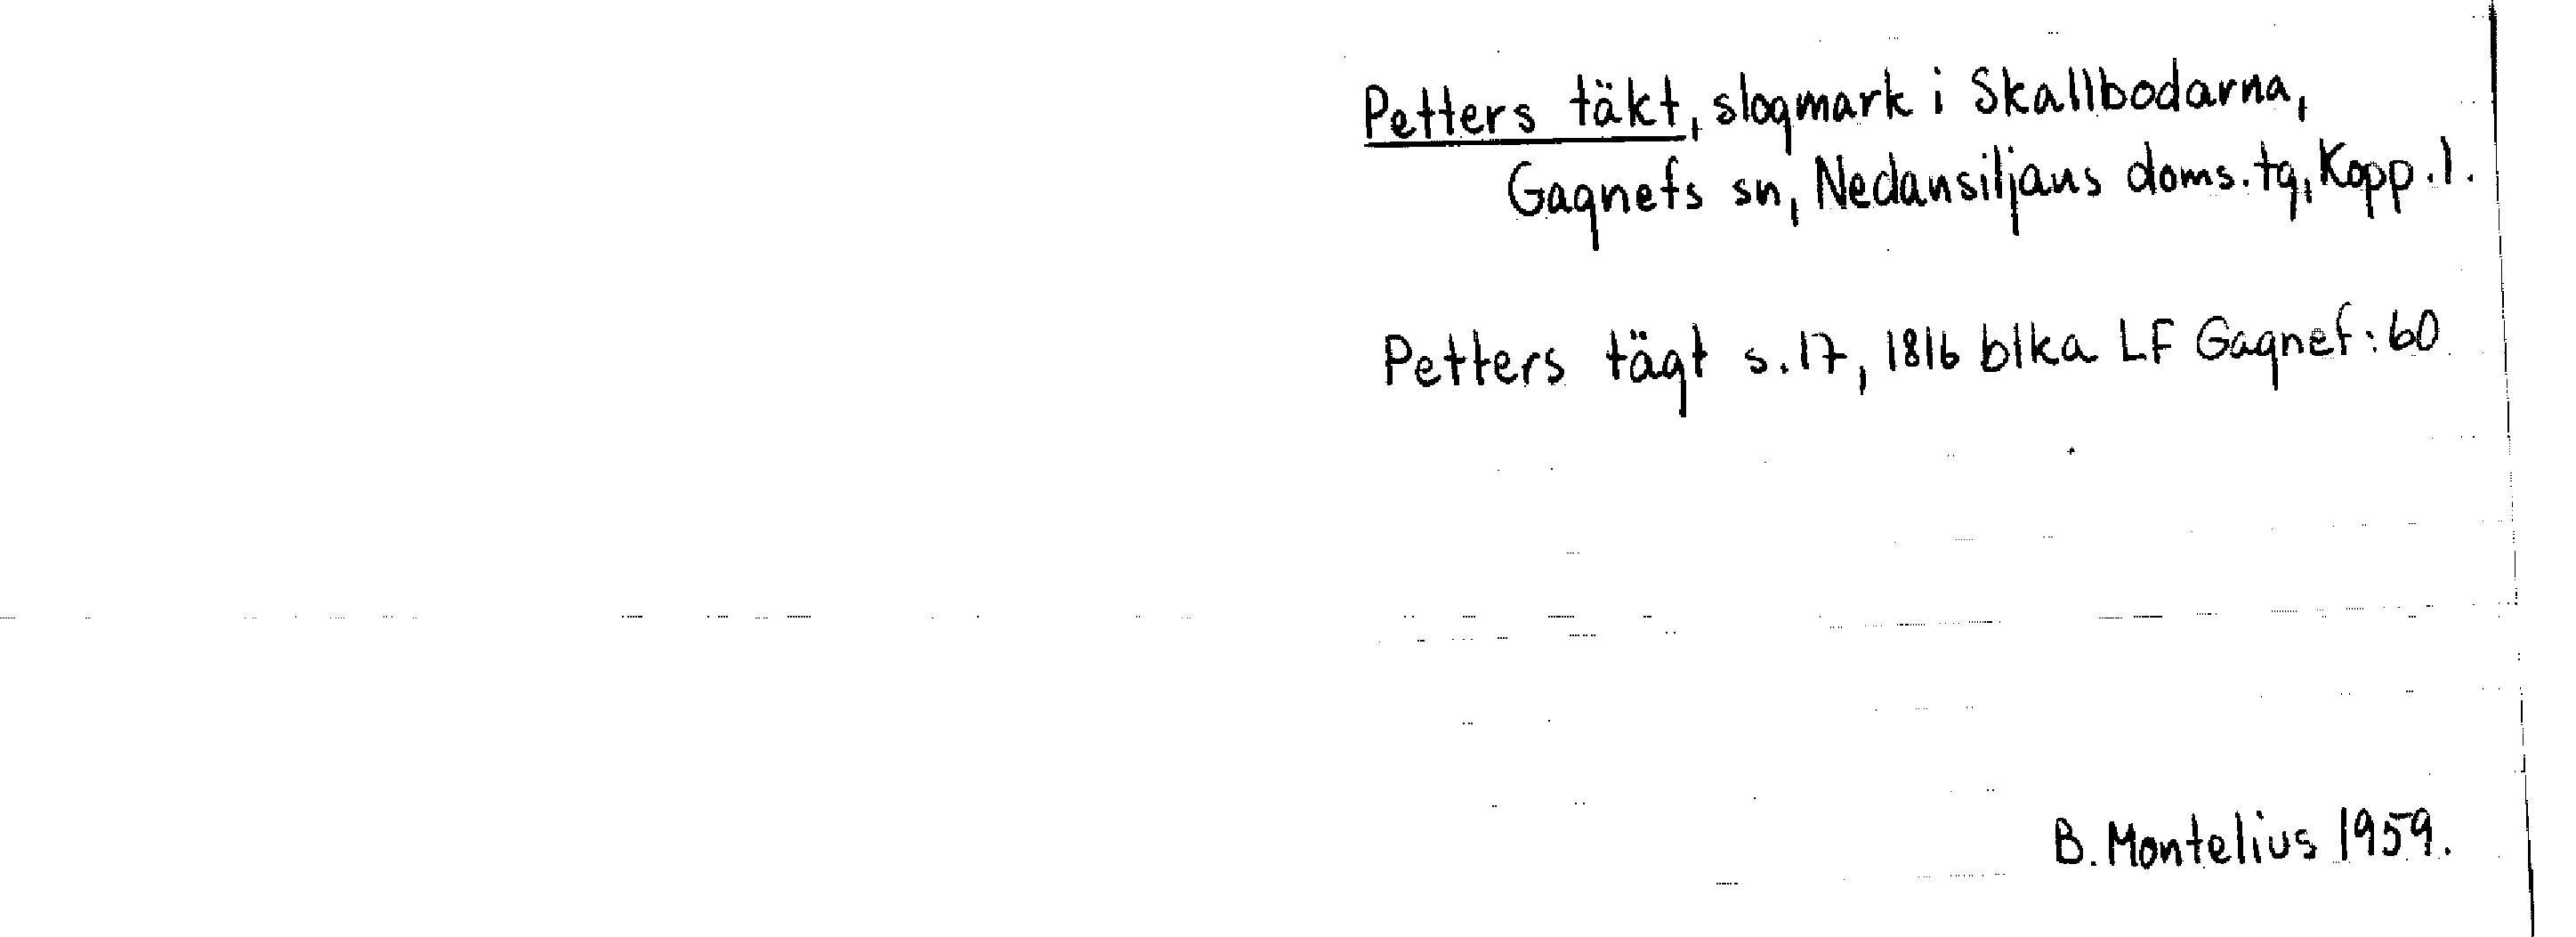 Petters täkt, slogmark i Skallbodarna,
Gagnefs sn, Nedansiljans doms.tg, Kopp.l.
Petters tägt s.17, 1816 blka LF Gagnef:60
B. Montelius 1959.